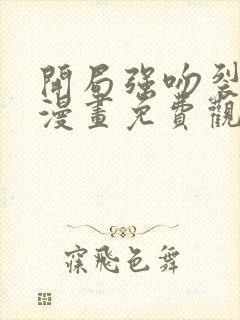 開局強吻裂
漫畫免費觀
寐飛色舞